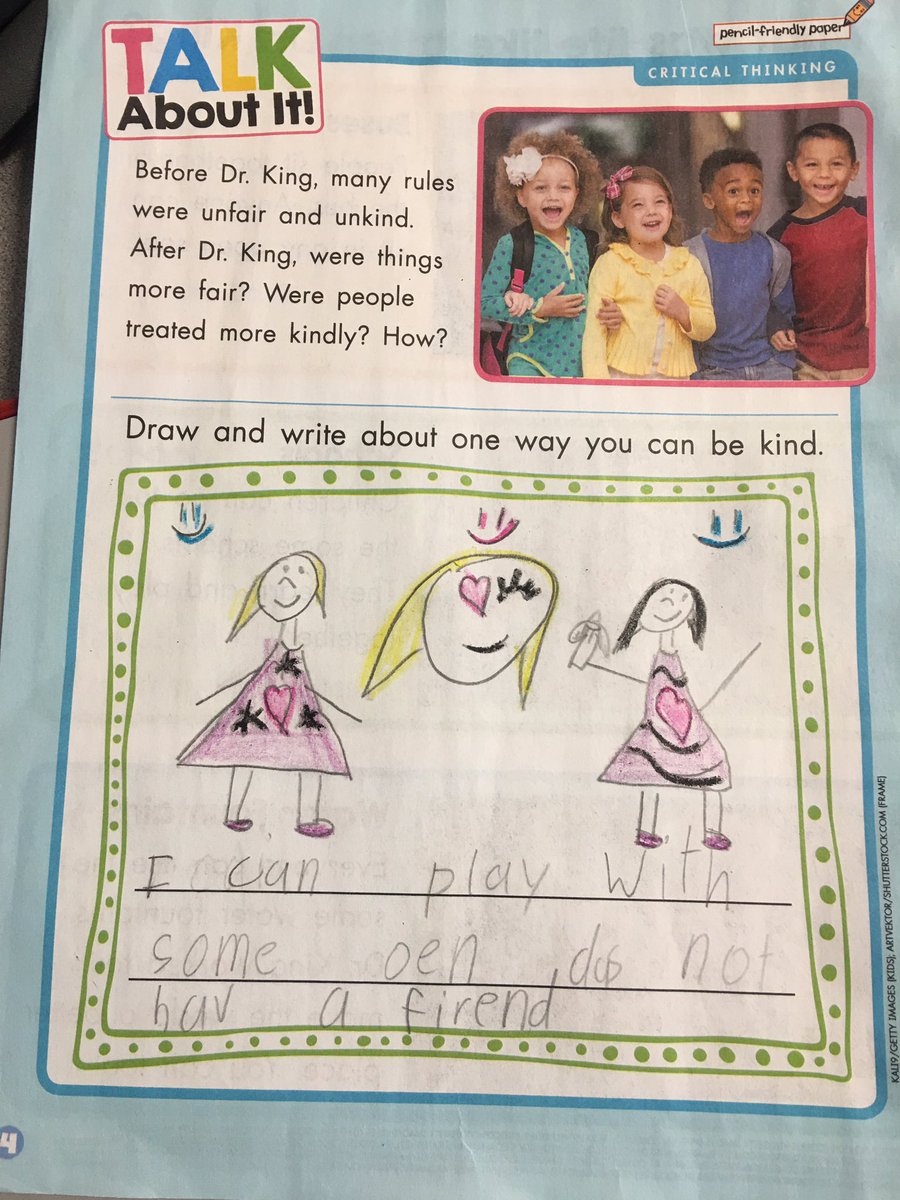 pencil-friendly paper
CRITICAL THINKING
TALK
About It!
Before Dr. King, many rules
were unfair and unkind.
After Dr. King, were things
more fair? Were people
treated more kindly? How?
Draw and write about one way you can be kind.
I can play with
some oen dos not
hav a firend
KALI9/GETTY IMAGES (KIDS); ARTVEKTOR/SHUTTERSTOCK.COM (FRAME)
4